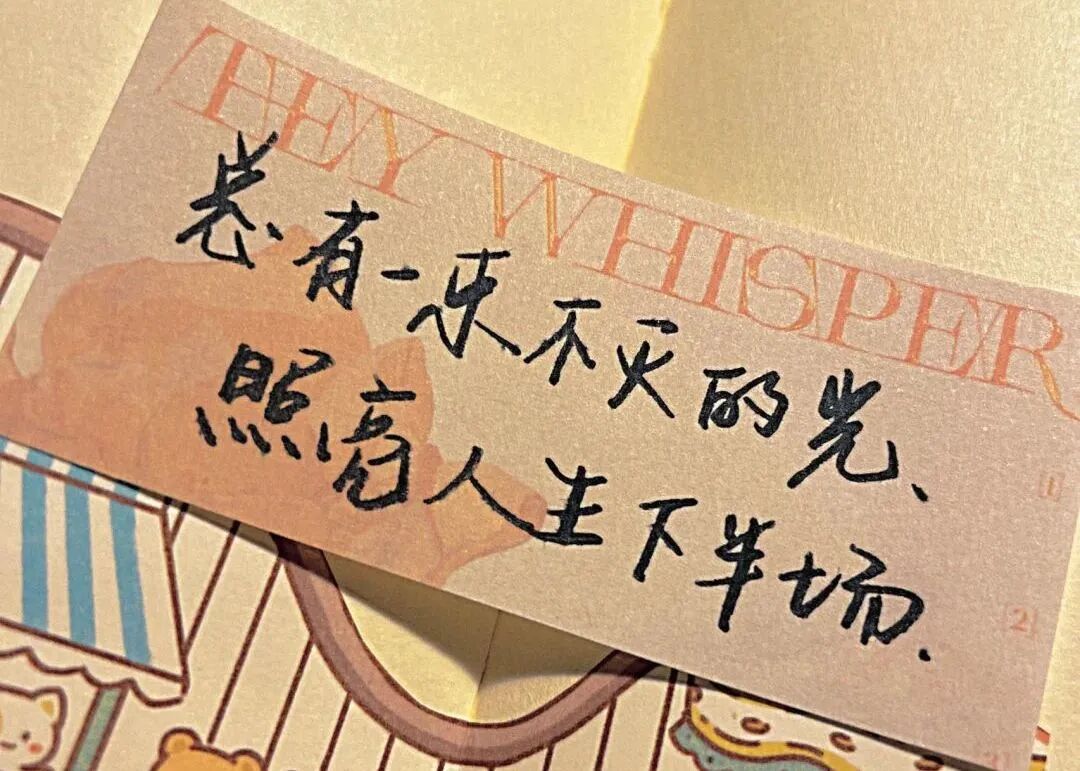 THEY WHISPER
总有一束不灭的光、
照亮人生下半场.
[1]
[2]